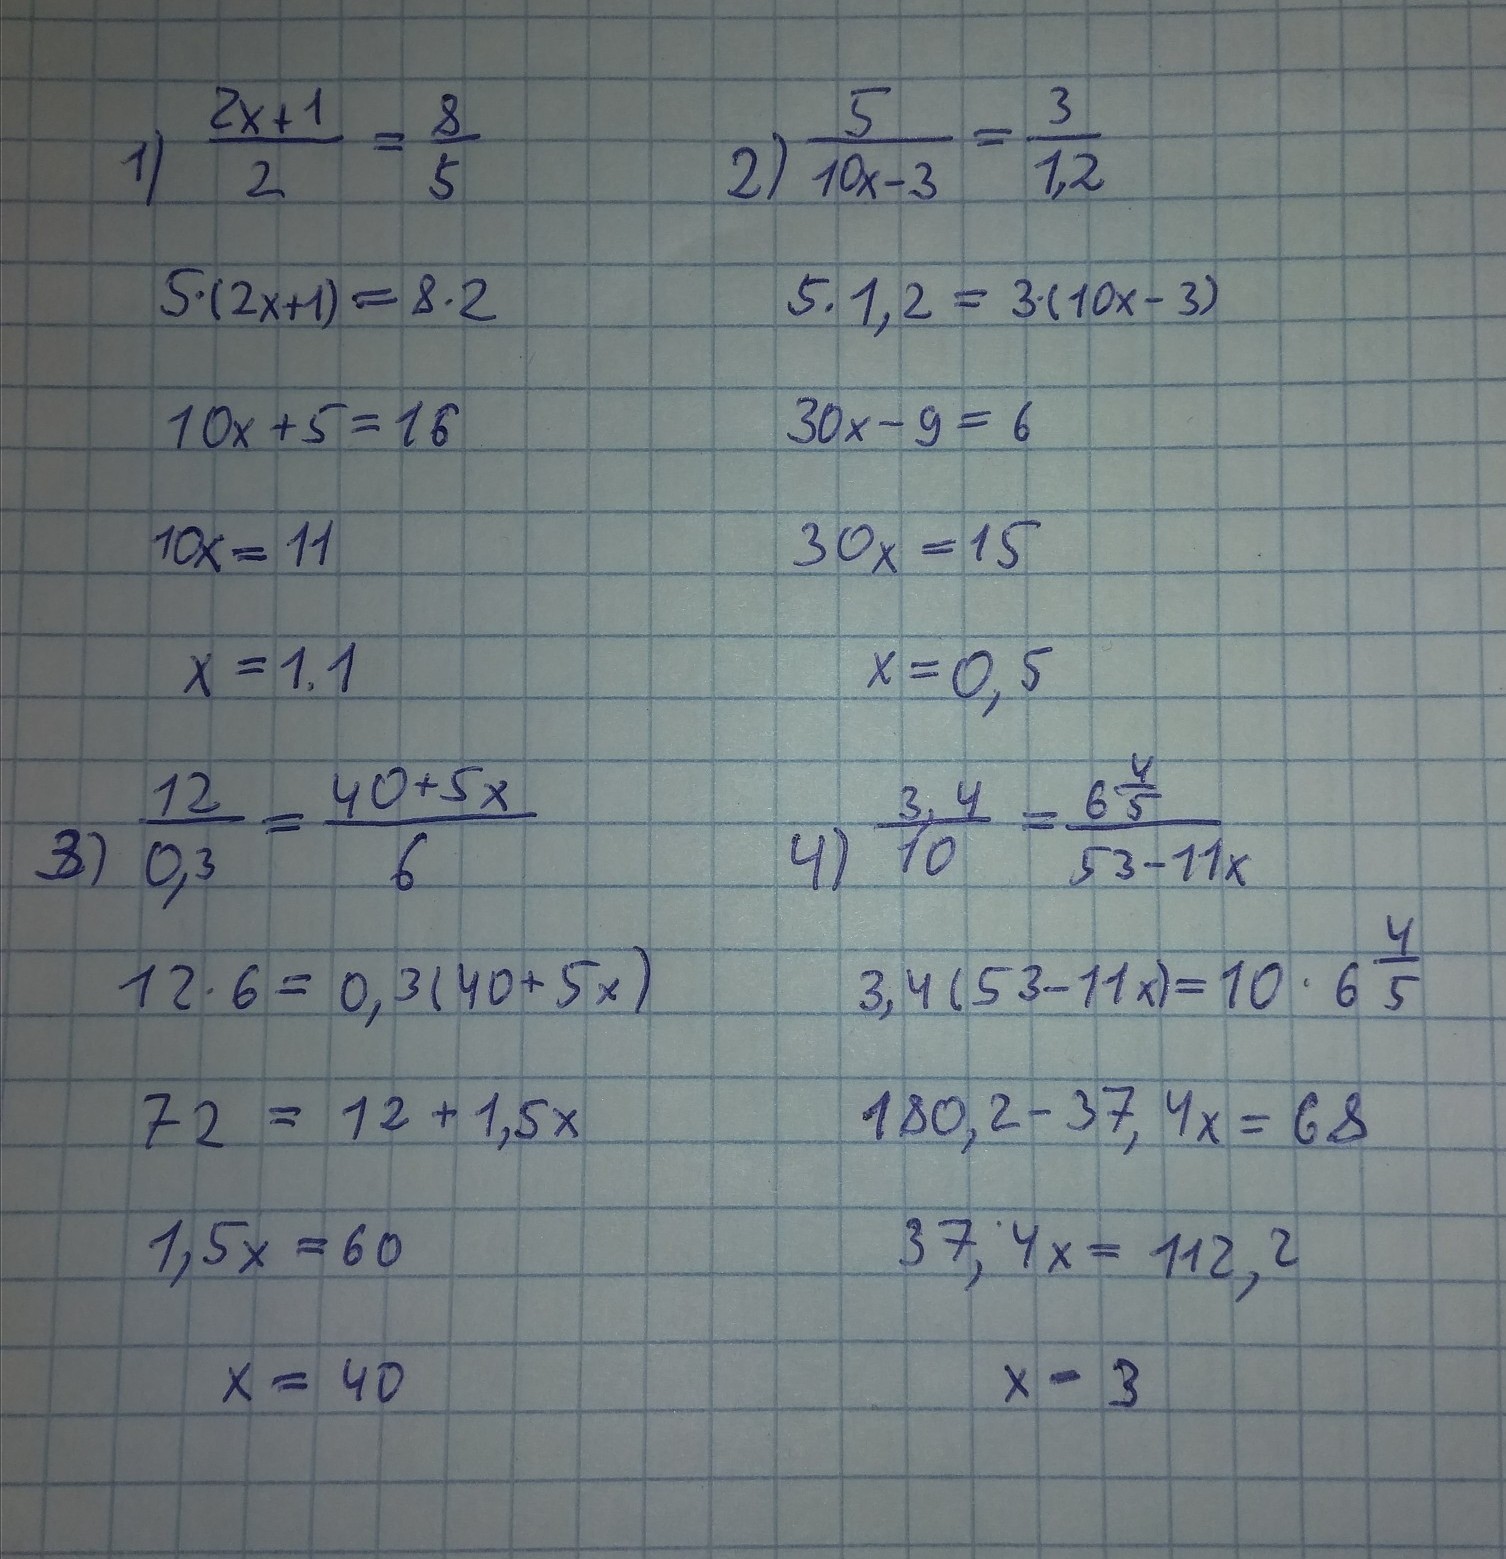 1) (2x+1)/2 = 8/5
5·(2x+1) = 8·2
10x + 5 = 16
10x = 11
x = 1.1
2) 5/(10x-3) = 3/1,2
5·1,2 = 3·(10x-3)
30x - 9 = 6
30x = 15
x = 0,5
3) 12/0,3 = (40+5x)/6
12·6 = 0,3(40+5x)
72 = 12 + 1,5x
1,5x = 60
x = 40
4) 3,4/10 = 6 4/5/(53-11x)
3,4(53-11x) = 10 · 6 4/5
180,2 - 37,4x = 68
37,4x = 112,2
x - 3